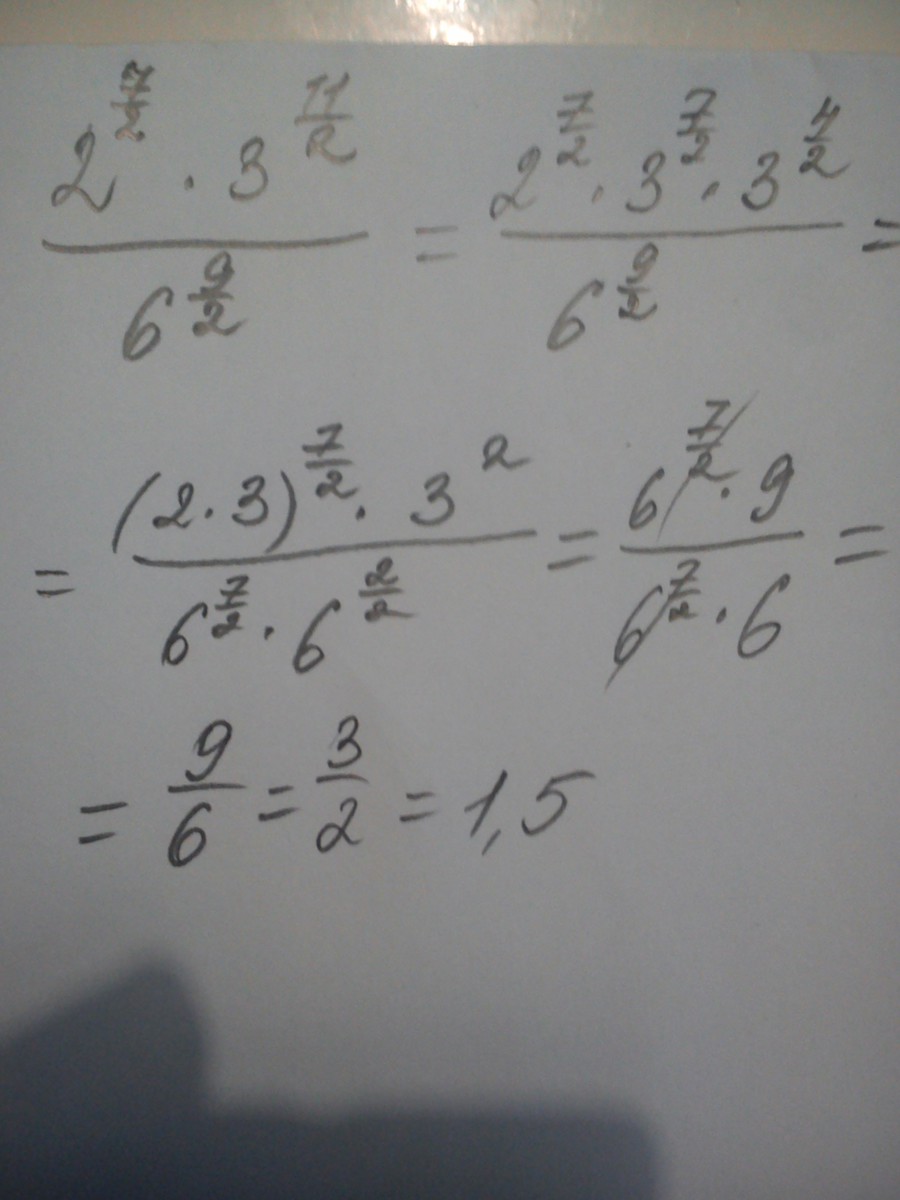 2^{7/2} · 3^{11/2} / 6^{9/2} = 2^{7/2} · 3^{7/2} · 3^{4/2} / 6^{9/2} =
= (2 · 3)^{7/2} · 3^2 / 6^{7/2} · 6^{2/2} = 6^{7/2} · 9 / 6^{7/2} · 6 =
= 9/6 = 3/2 = 1,5